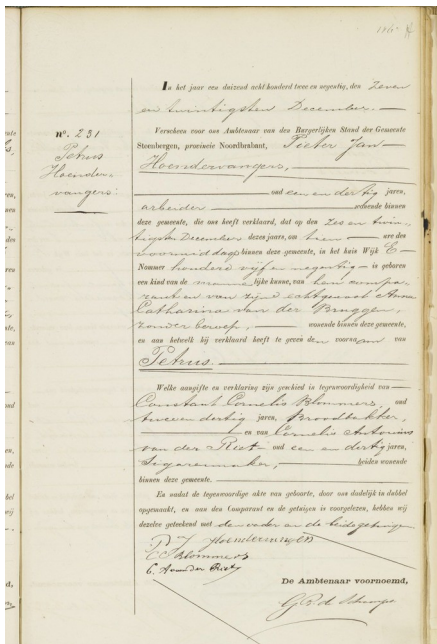 116
In het jaar een duizend acht honderd twee en negentig, den Zeven
en twintigsten December.
Verscheen voor ons Ambtenaar van den Burgerlijken Stand der Gemeente
Steenbergen, provincie Noordbrabant, Pieter Jan
Hoendervangers,
oud een en dertig jaren,
arbeider wonende binnen
deze gemeente, die ons heeft verklaard, dat op den Zes en twin-
tigsten December dezes jaars, om tien ure des
voormiddags binnen deze gemeente, in het huis Wijk E
Nommer honderd vijf en negentig is geboren
een kind van de mannelijke kunne, van hem compa-
rant en van zijne echtgenoote Anna
Catharina van der Bruggen,
zonder beroep, wonende binnen deze gemeente,
en aan hetwelk hij verklaard heeft te geven den voornaam van
Petrus.
Welke aangifte en verklaring zijn geschied in tegenwoordigheid van
Constant Cornelis Blommers, oud
twee en dertig jaren, Broodbakker,
en van Cornelis Antonius
van der Riet oud een en dertig jaren,
Sigarenmaker, beiden wonende
binnen deze gemeente.
En nadat de tegenwoordige akte van geboorte, door ons dadelijk in dubbel
opgemaakt, en aan den Comparant en de getuigen is voorgelezen, hebben wij
dezelve geteekend met de vader en de beide getuigen
P J Hoendervangers
C C Blommers
C. A van der Riet
De Ambtenaar voornoemd,
n°. 231
Petrus
Hoender-
vangers.